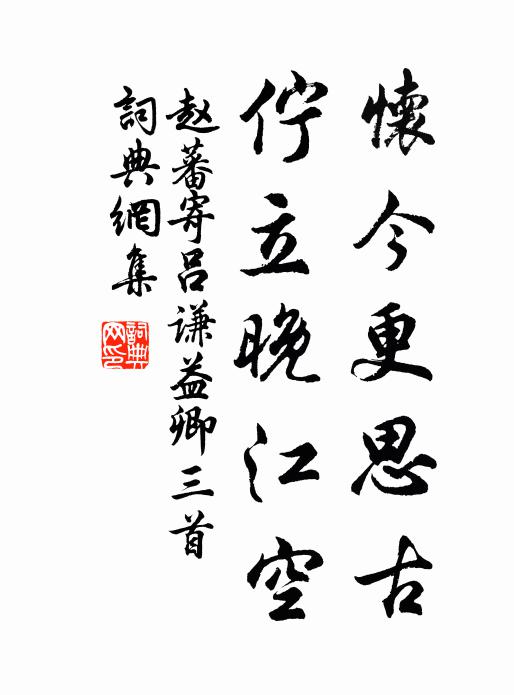 懷今更思古
佇立晚江空
赵蕃寄吕谦益卿三首
詞典網集
詞典网印